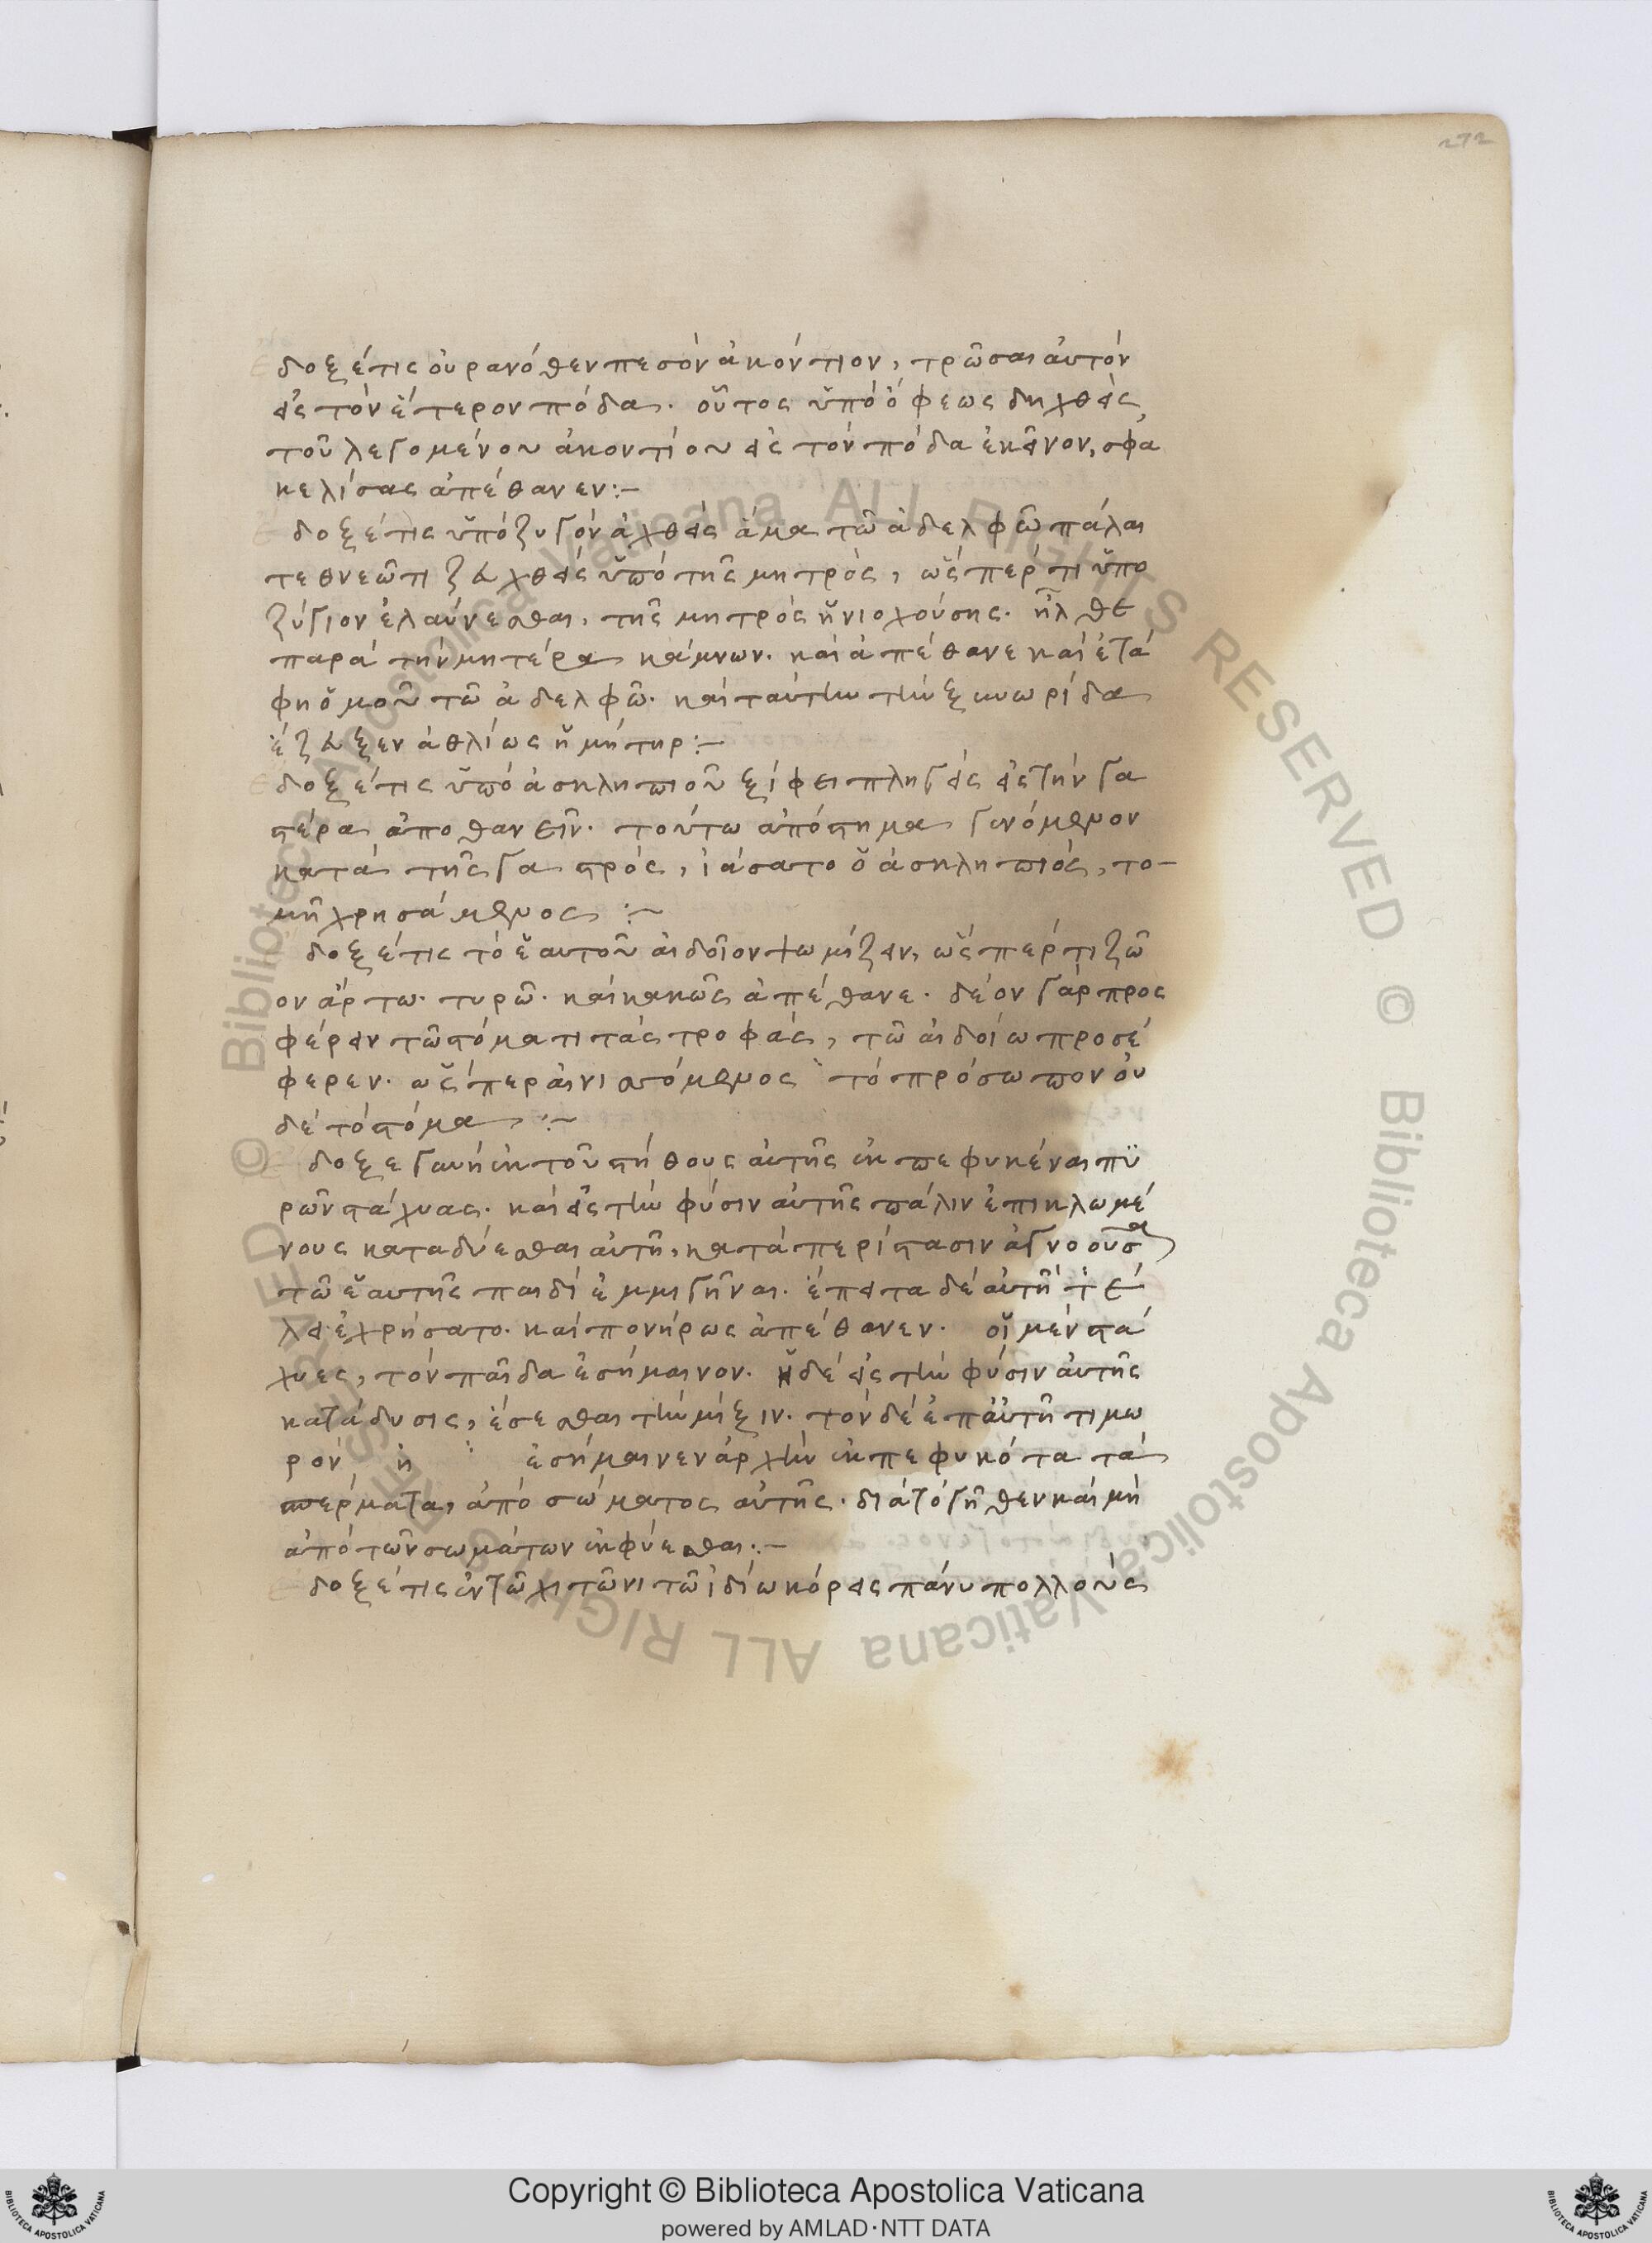 272
Ἔδοξέ τις οὐρανόθεν πεσὸν ἀκόντιον, τρῶσαι αὐτὸν
εἰς τὸν ἕτερον πόδα. οὗτος ὑπὸ ὄφεως δηχθεὶς
τοῦ λεγομένου ἀκοντίου εἰς τὸν πόδα ἐκεῖνον, σφα
κελίσας ἀπέθανεν:–
Ἔδοξέ τις ὑπὸ ζυγὸν ἀχθεὶς ἅμα τῶ ἀδελφῶ πάλαι
τεθνεῶτι ζευχθεὶς ὑπὸ τῆς μητρὸς, ὥσπέρ τι ὑπο
ζύγιον ἐλαύνεσθαι, τῆς μητρὸς ἡνιοχούσης. ἦλθε
παρὰ τὴν μητέρα κάμνων. καὶ ἀπέθανε καὶ ἐτά
φη ὁμοῦ τῶ ἀδελφῶ. καὶ ταύτην τὴν ξυνωρίδα
ἔζευξεν ἀθλίως ἡ μήτηρ:–
Ἔδοξέ τις ὑπὸ ἀσκληπιοῦ ξίφει πληγεὶς εἰς τὴν γα
στέρα ἀποθανεῖν. τούτω ἀπόστημα γενόμενον
κατὰ τῆς γαστρὸς, ἰάσατο ὁ ἀσκληπιὸς, το–
μῆ χρησάμενος :~
Ἔδοξέ τις τὸ ἑαυτοῦ αἰδοῖον ψωμίζειν, ὥσπέρ τι ζῶ
ον ἄρτω. τυρῶ. καὶ κακῶς ἀπέθανε. δέον γὰρ προς
φέρειν τῶ στόματι τὰς τροφὰς, τῶ αἰδοίω προσέ
φερεν. ὥσπερ αἰνιστόμενος τὸ πρόσωπον οὐ
δὲ τὸ στόμα :~
Ἔδοξε γυνὴ ἐκ τοῦ στήθους αὐτῆς ἐκπεφυκέναι πϋ
ρῶν στάχυας. καὶ εἰς τὴν φύσιν αὐτῆς πάλιν ἐπικλωμέ
νους καταδύεσθαι αὐτῆ, κατὰ περίστασιν ἀγνοοῦσα
τῶ ἑαυτῆς παιδὶ ἐμμιγῆναι. ἔπειτα δὲ αὐτὴ τε
λει ἐχρήσατο. καὶ πονήρως ἀπέθανεν. οἱ μὲν στά
χυες, τὸν παῖδα ἐσήμαινον. ἡ δὲ εἰς τὴν φύσιν αὐτῆς
κατάδυσις, ἔσεσθαι τὴν μίξιν. τὸν δὲ ἐπ αὐτῆ τιμω
ρὸν ἢ ἐσήμαινεν ἀρχὴν ἐκπεφυκότα τὰ
σπέρματα, ἀπὸ σώματος αὐτῆς. διὰ τὸ γῆθεν καὶ μὴ
ἀπὸ τῶν σωμάτων ἐκφύεσθαι:–
Ἔδοξέ τις ἐν τῶ χιτῶνι τῶ ἰδίω κόρεις πάνυ πολλοὺς
Copyright © Biblioteca Apostolica Vaticana
powered by AMLAD·NTT DATA
BIBLIOTECA APOSTOLICA VATICANA
BIBLIOTECA APOSTOLICA VATICANA
© Biblioteca Apostolica Vaticana ALL RIGHTS RESERVED © Biblioteca Apostolica Vaticana ALL RIGHTS RESERVED